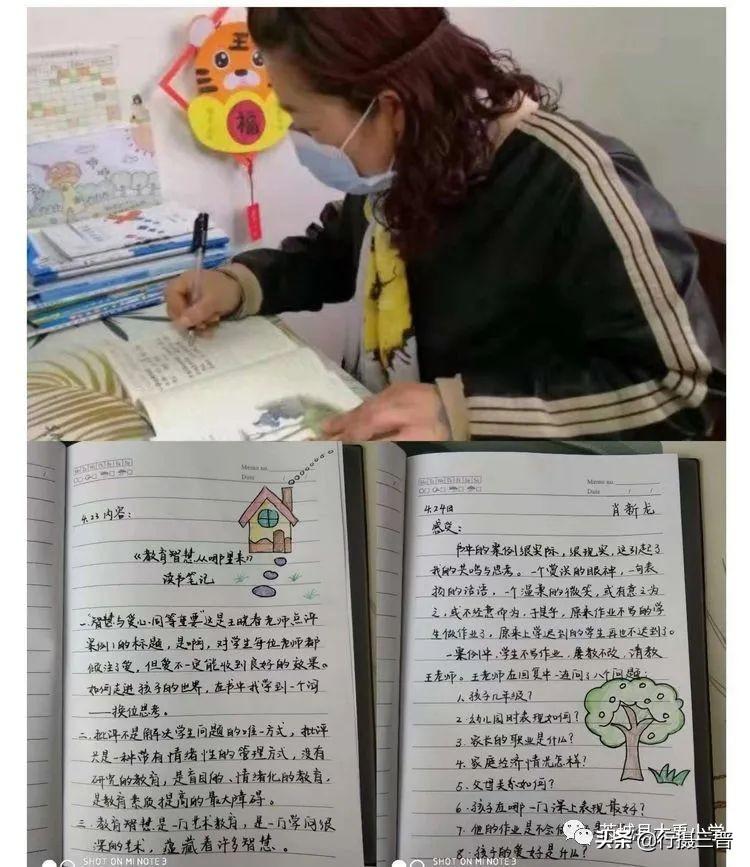 王
福
Memo no.
Date / /
4.23 内容:
《教育智慧从哪里来》
读书笔记
一."智慧与爱心同等重要"这是王晓春老师点评
案例1的标题,是啊,对学生每位老师都
倾注了爱,但爱不一定能收到良好的效果。
如何走进孩子的世界,在书中我学到一个词
——换位思考。
二.批评不是解决学生问题的唯一方式,批评
只是一种带有情绪性的管理方式,没有
研究的教育,是盲目的、情绪化的教育,
是教育素质提高的最大障碍。
三.教育智慧是一门艺术教育,是一门学问很
深的艺术,蕴藏着许多智慧。
SHOT ON MI NOTE 3
Mo Tu We Th Fr Sa Su
Memo no.
Date / /
4.24日 肖新龙
感受:
书中的案例很实际,很现实,这引起了
我的共鸣与思考。一个赞许的眼神,一句表
扬的话语,一个温柔的微笑,或有意之为
之,或不经意而为,于是乎,原来作业不写的学
生做作业了,原来上学迟到的学生再也不迟到了。
一案例中,学生不写作业,屡教不改,请教
王老师。王老师在回复中一连问了八个问题:
1. 孩子几年级?
2. 幼儿园时表现如何?
3. 家长的职业是什么?
4. 家庭经济情况怎样?
5. 父母关系如何?
6. 孩子在哪一门课上表现最好?
7. 他的作业是不全
8. 孩子的爱好是什么?
SHOT ON MI NOTE 3
头条@行摄三晋